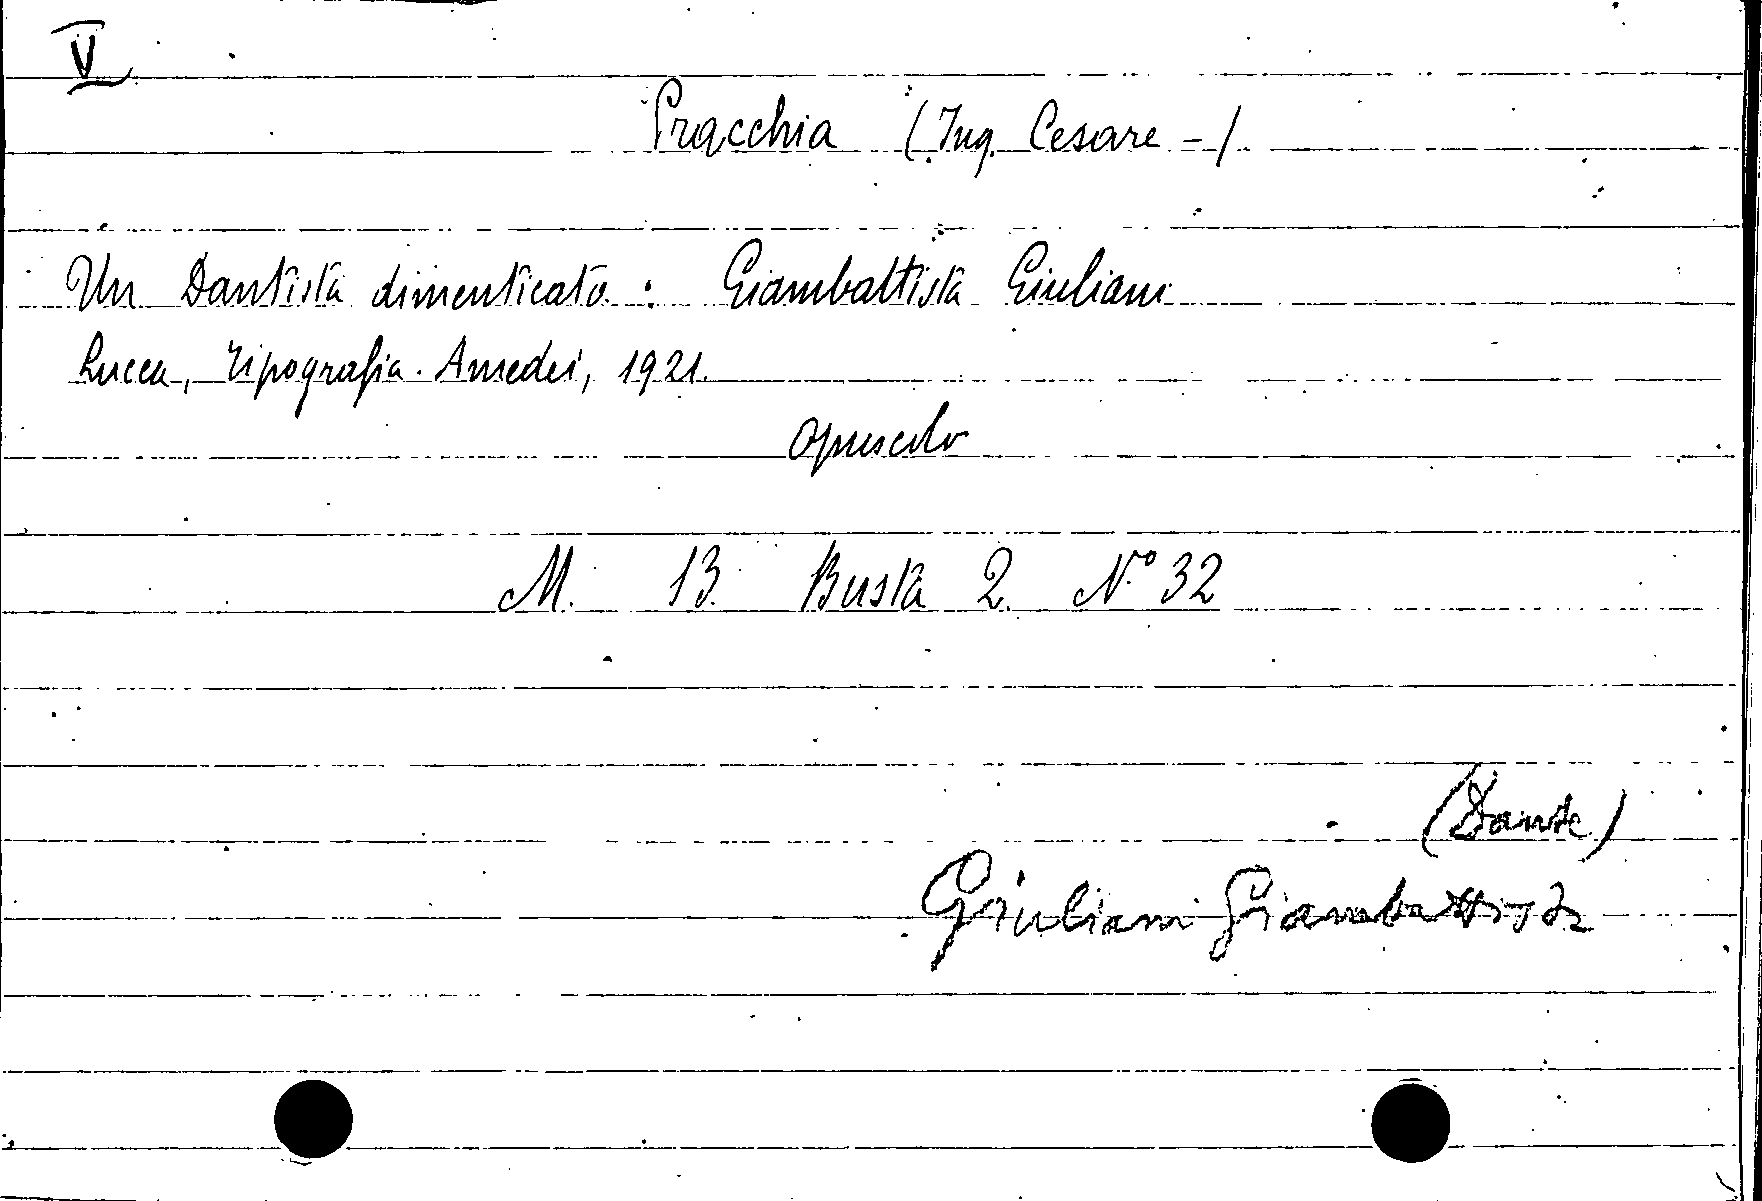 V
Pracchia (Ing. Cesare -)
Un Dantista dimenticato : Giambattista Giuliani
Lucca, Tipografia Amedei, 1921.
opuscolo
M. 13 Busta 2 Nº 32
(Dante)
Giuliani Giambattista